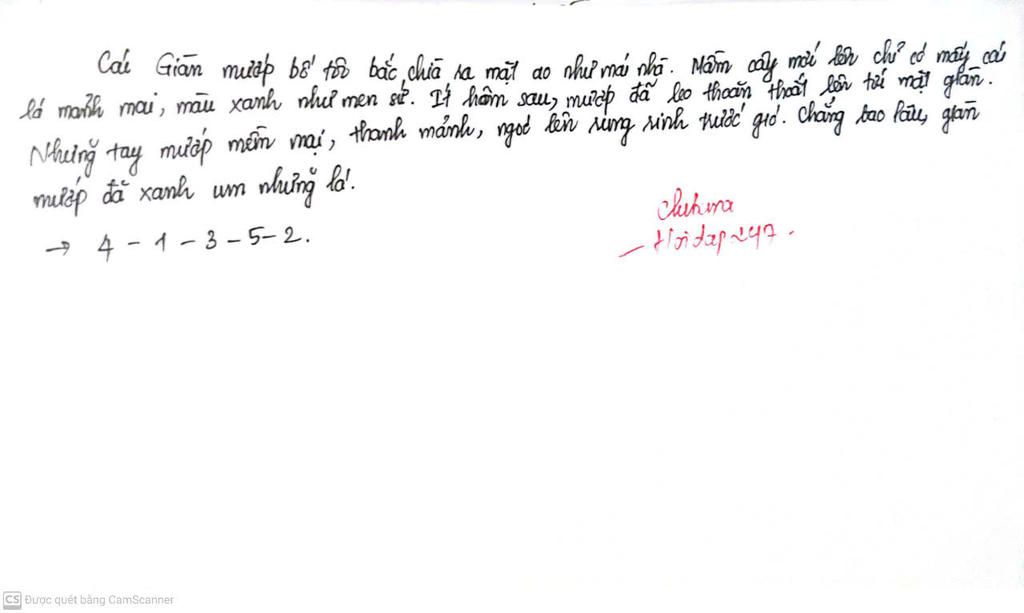 Cái Giàn mướp bố tôi bắc chìa ra mặt ao như mái nhà. Mầm cây mới lên chỉ có mấy cái
lá mảnh mai, màu xanh như men sứ. Ít hôm sau, mướp đã leo thoăn thoắt lên tới mặt giàn.
Những tay mướp mềm mại, thanh mảnh, ngoi lên rung rinh trước gió. Chẳng bao lâu, giàn
mướp đã xanh um những lá.
→ 4 - 1 - 3 - 5 - 2.
- Hoidap247.
CS Được quét bằng CamScanner